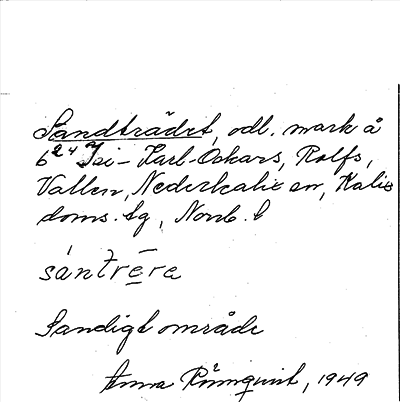 Sandträdet, odl. mark å
6²⁴ Isi-Karl-Oskars, Rolfs,
Vallen, Nederkalix an, Kalix
doms. lg, Norrb. l
sántrēra
Sandigt område
Anna Rönnquist, 1949